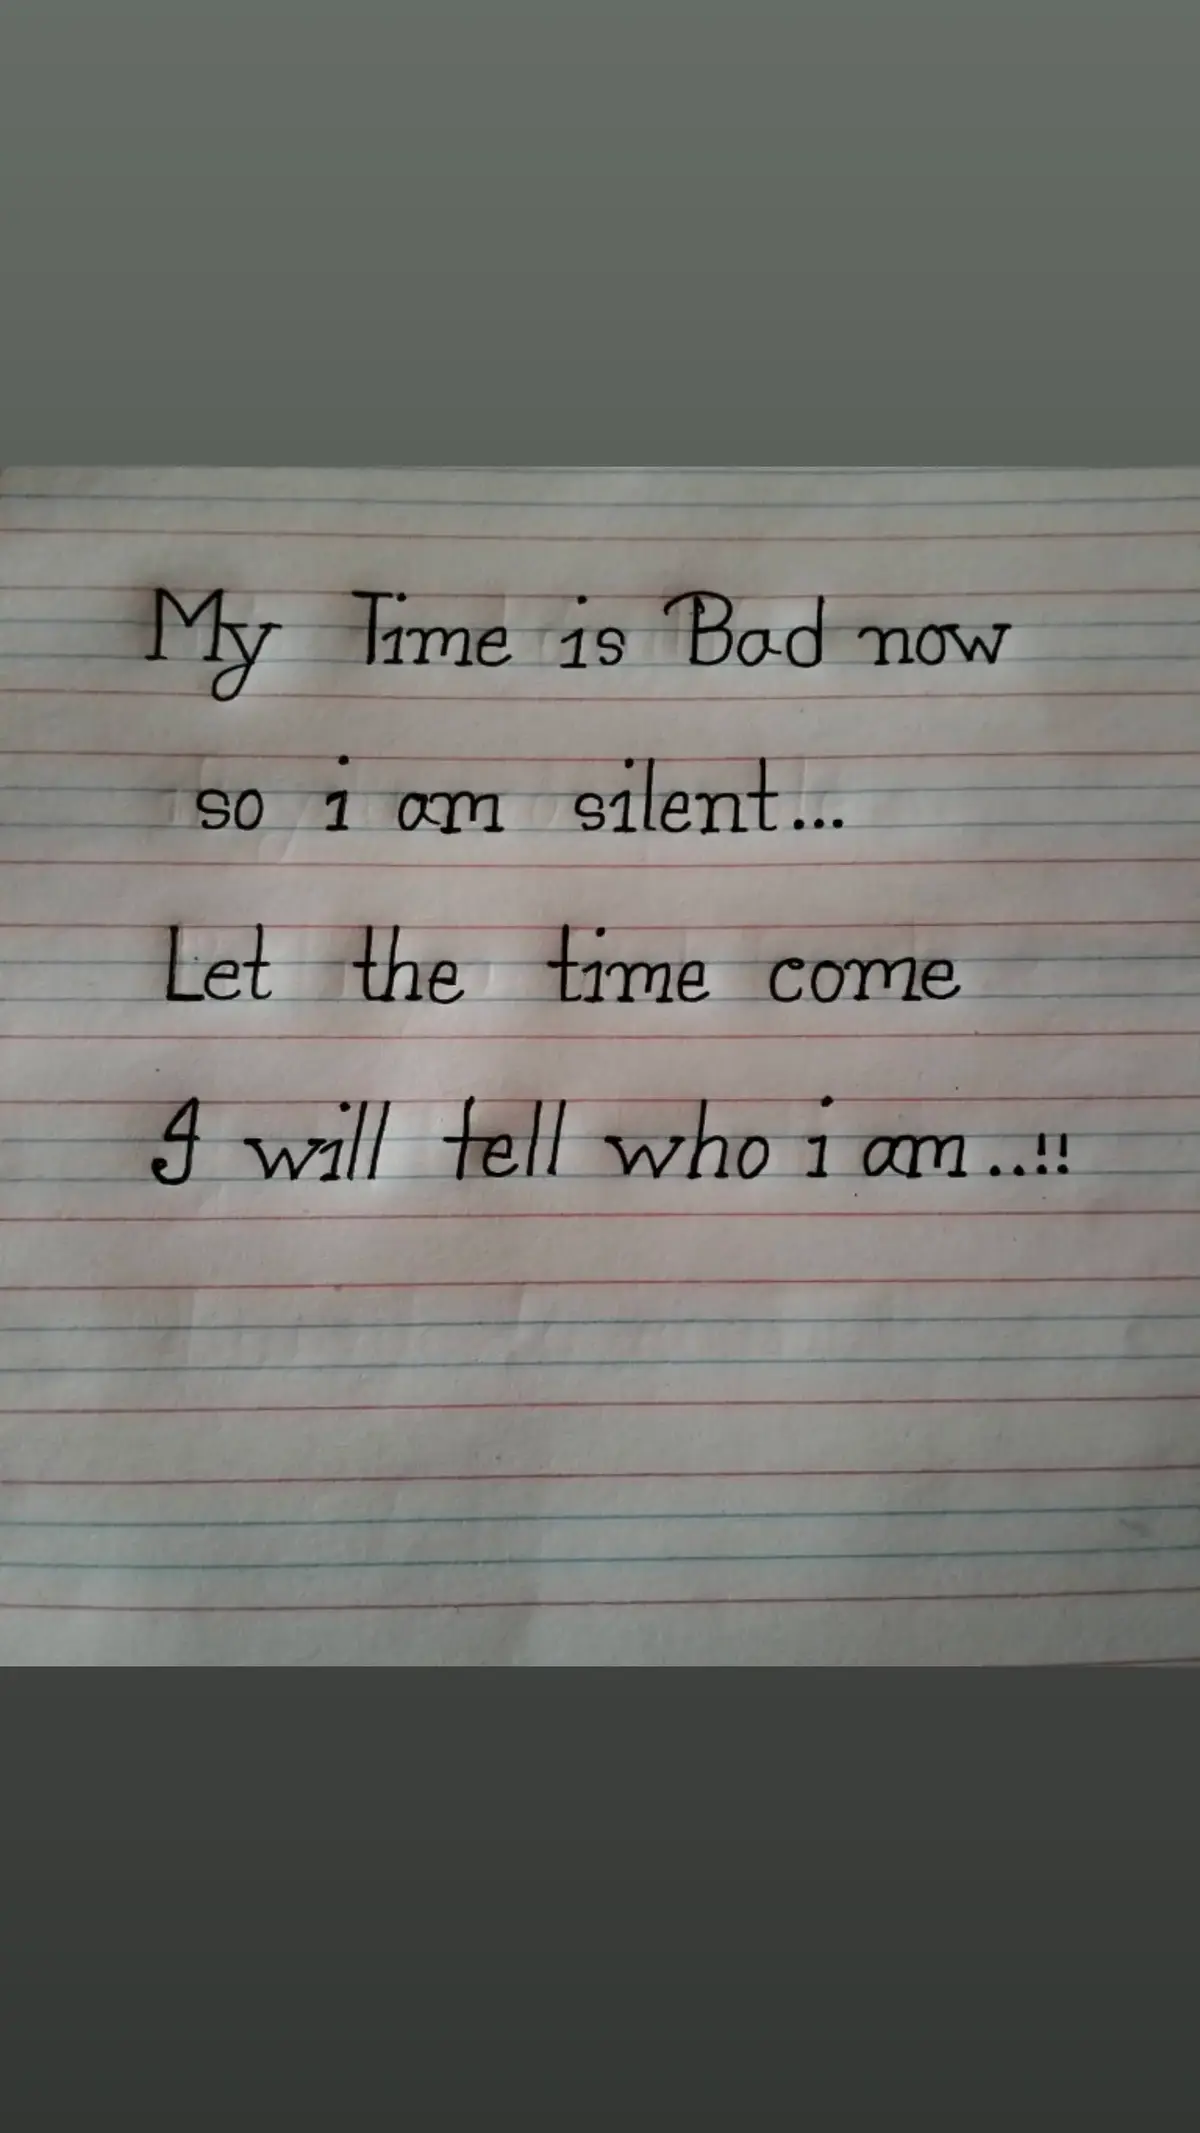 My Time is Bad now
so i am silent...
Let the time come
I will tell who i am..!!